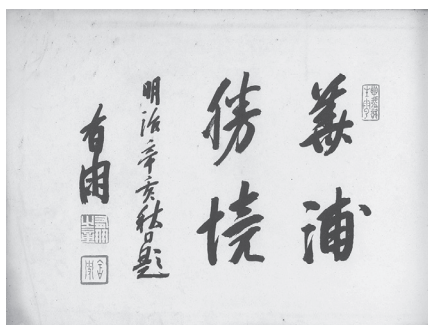 浦
勝境
明治辛亥秋日題
有朋